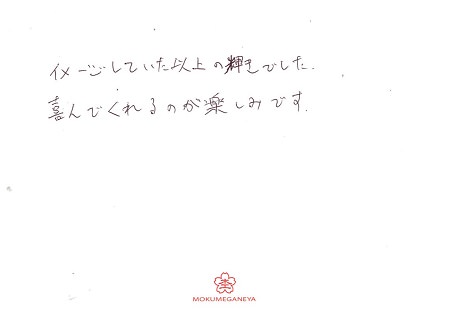 イメージしていた以上の輝きでした.
喜んでくれるのが楽しみです.
MOKUMEGANEYA